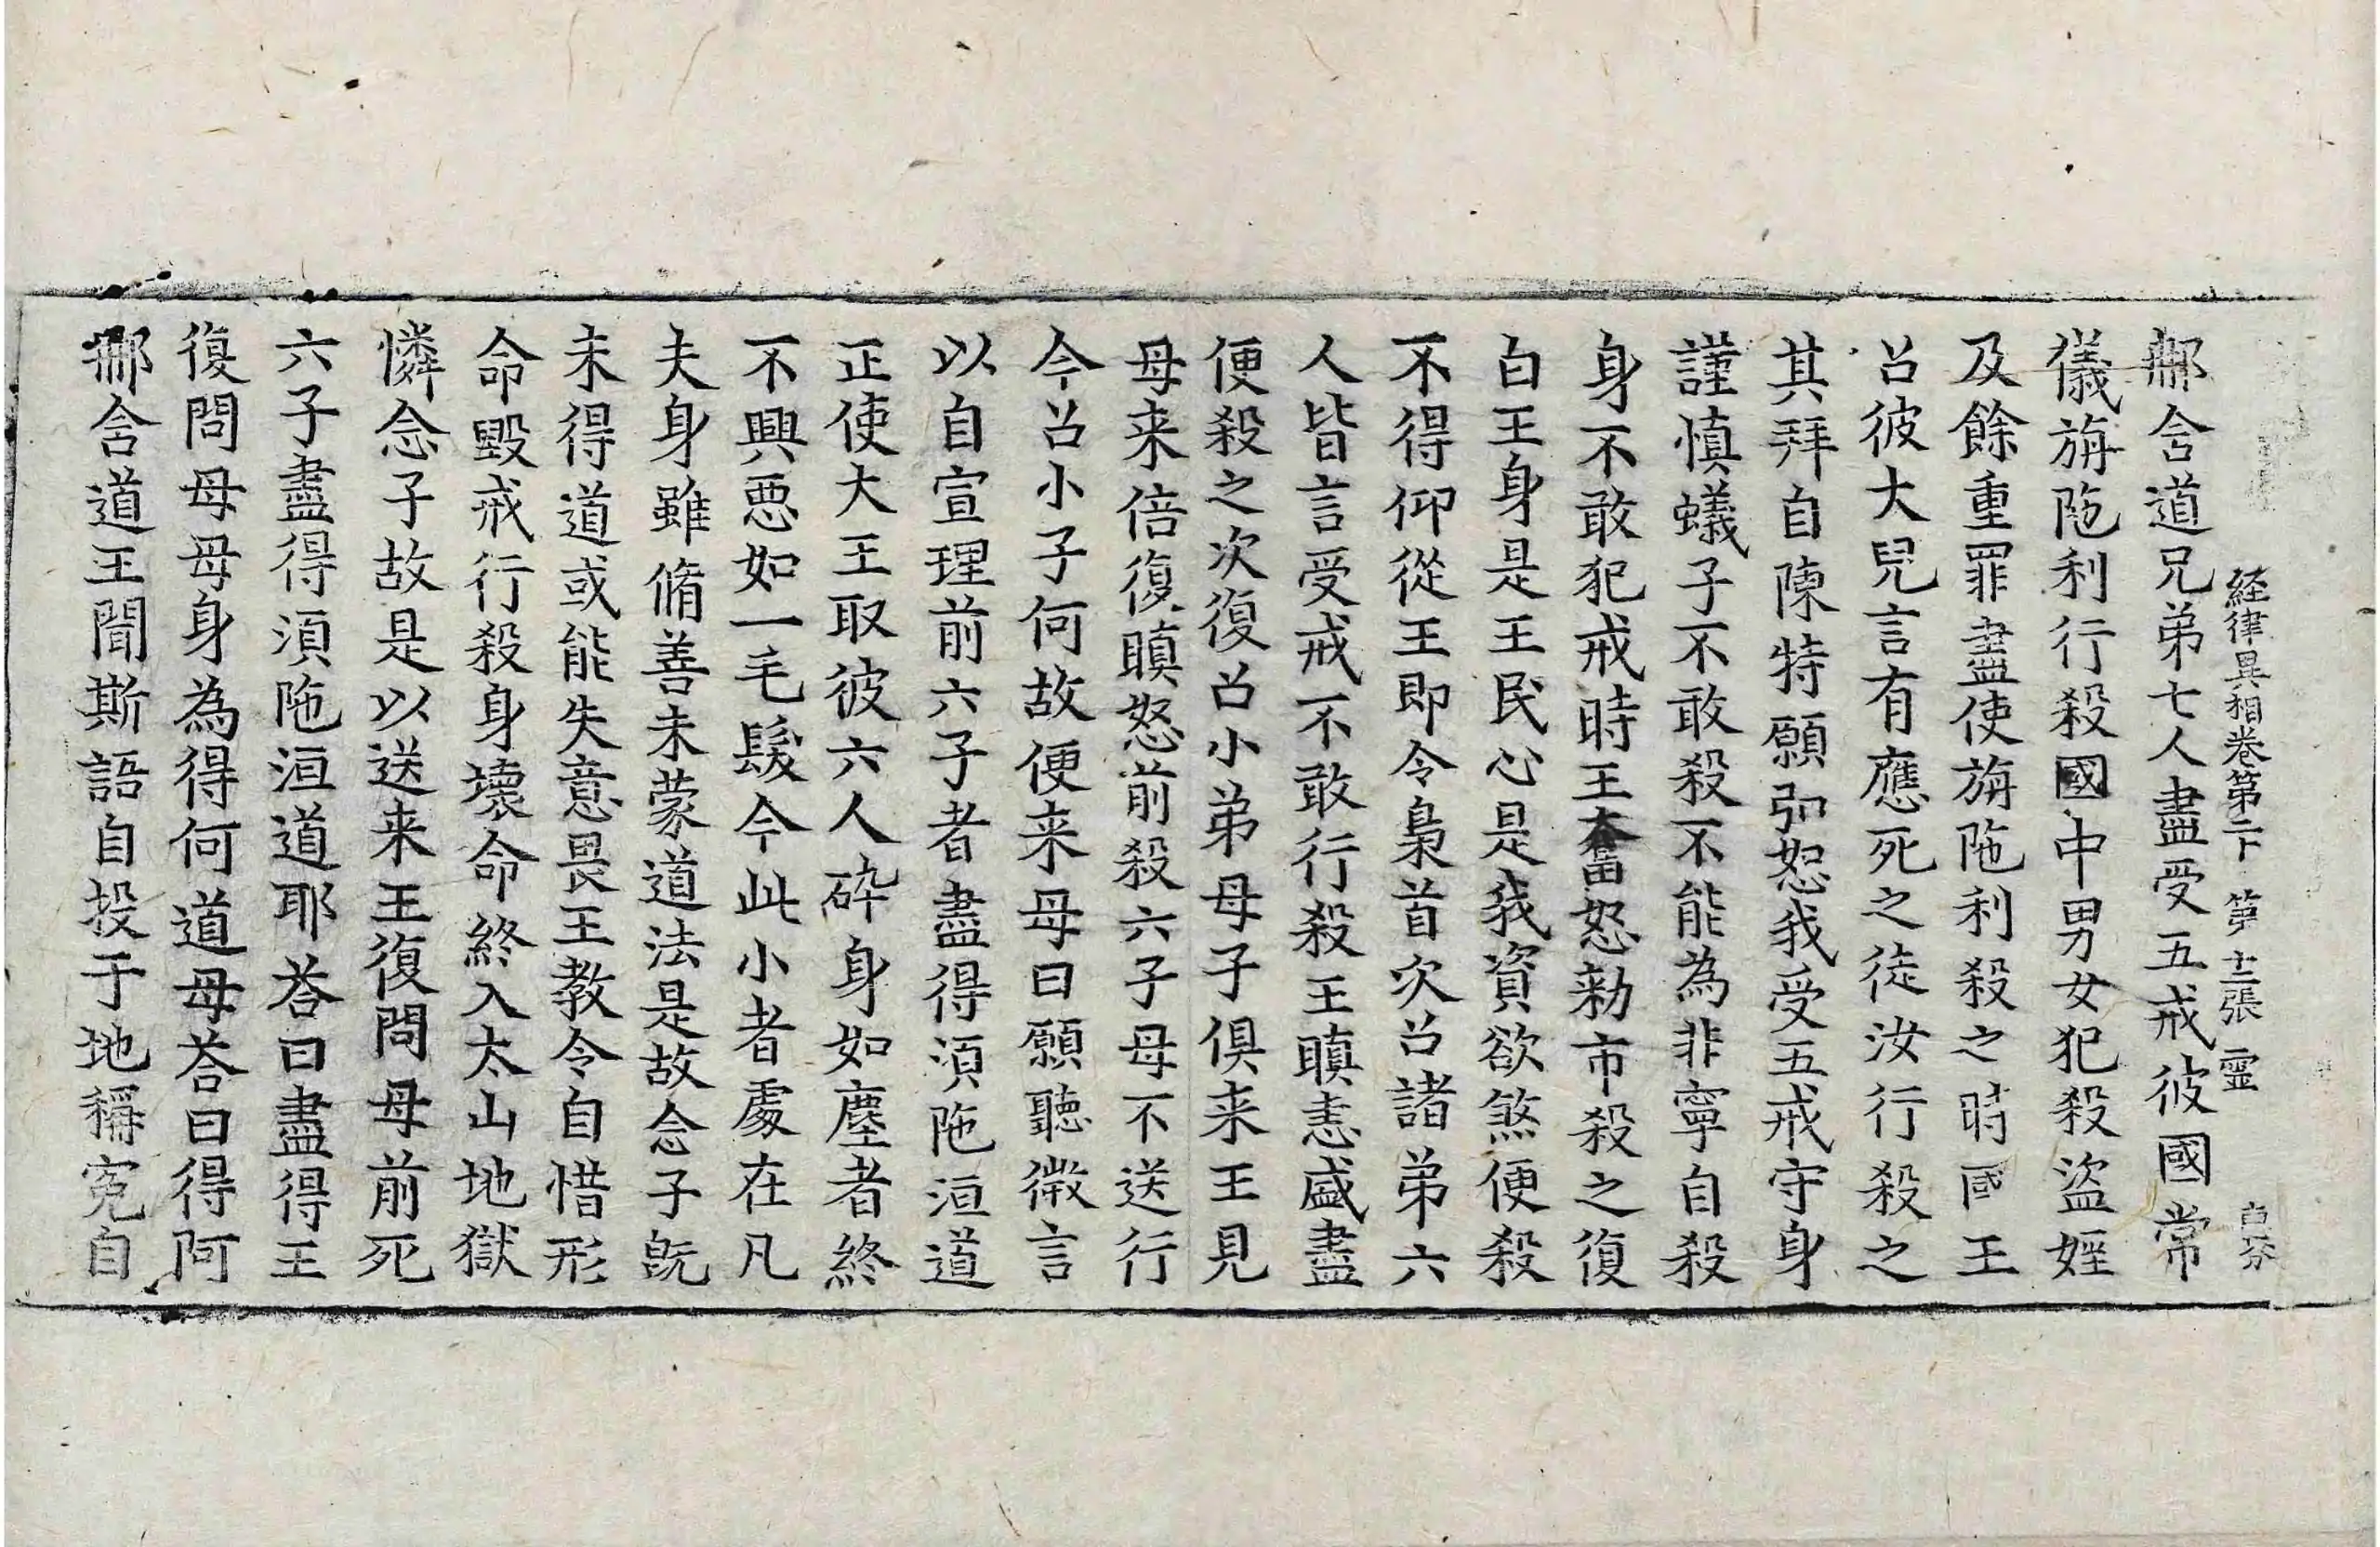 経律異相卷第二下 第十二張 靈
那含道兄弟七人盡受五戒彼國常
儀旃陁利行殺國中男女犯殺盜婬
及餘重罪盡使旃陁利殺之時國王
召彼大兒言有應死之徒汝行殺之
其拜自陳特願弘恕我受五戒守身
謹慎蟻子不敢殺不能為非寧自殺
身不敢犯戒時王奮怒勑市殺之復
白王身是王民心是我資欲煞便殺
不得仰從王即令梟首次召諸弟六
人皆言受戒不敢行殺王瞋恚盛盡
便殺之次復召小弟母子俱来王見
母来倍復瞋怒前殺六子母不送行
今召小子何故便来母曰願聽微言
以自宣理前六子者盡得須陁洹道
正使大王取彼六人碎身如塵者終
不興惡如一毛髮今此小者處在凡
夫身雖脩善未蒙道法是故念子旣
未得道或能失意畏王教令自惜形
命毀戒行殺身壞命終入太山地獄
憐念子故是以送来王復問母前死
六子盡得湏陁洹道耶荅曰盡得王
復問母母身為得何道母荅曰得阿
那含道王聞斯語自投于地稱寃自